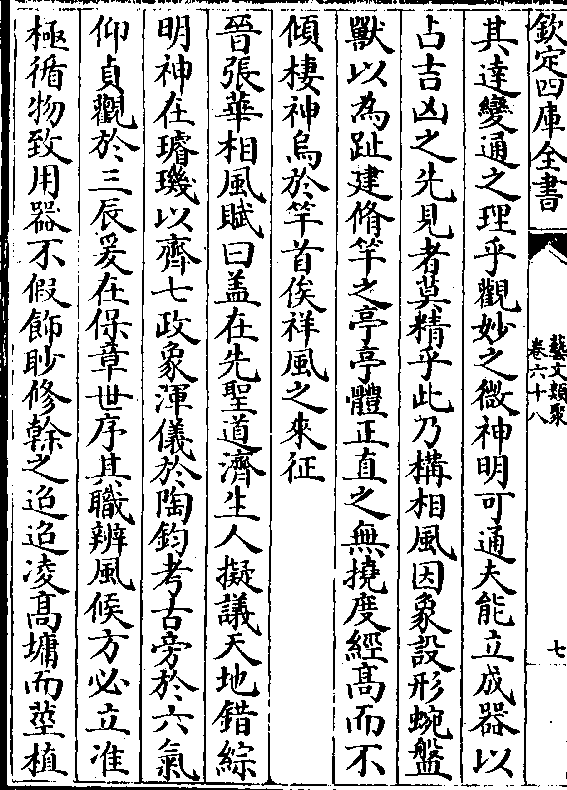 欽定四庫全書
藝文類聚
卷六十八
七
其達變通之理乎觀妙之微神明可通夫能立成器以
占吉凶之先見者莫精乎此乃構相風因象設形蜿盤
獸以為趾建脩竿之亭亭體正直之無撓度經髙而不
傾棲神烏於竿首俟祥風之來征
晉張華相風賦曰盖在先聖道濟生人擬議天地錯綜
明神在璿璣以齊七政象渾儀於陶鈞考古旁於六氣
仰貞觀於三辰爰在保章世序其職辨風候方必立准
極循物致用器不假飾眇修幹之迢迢凌髙墉而莖植